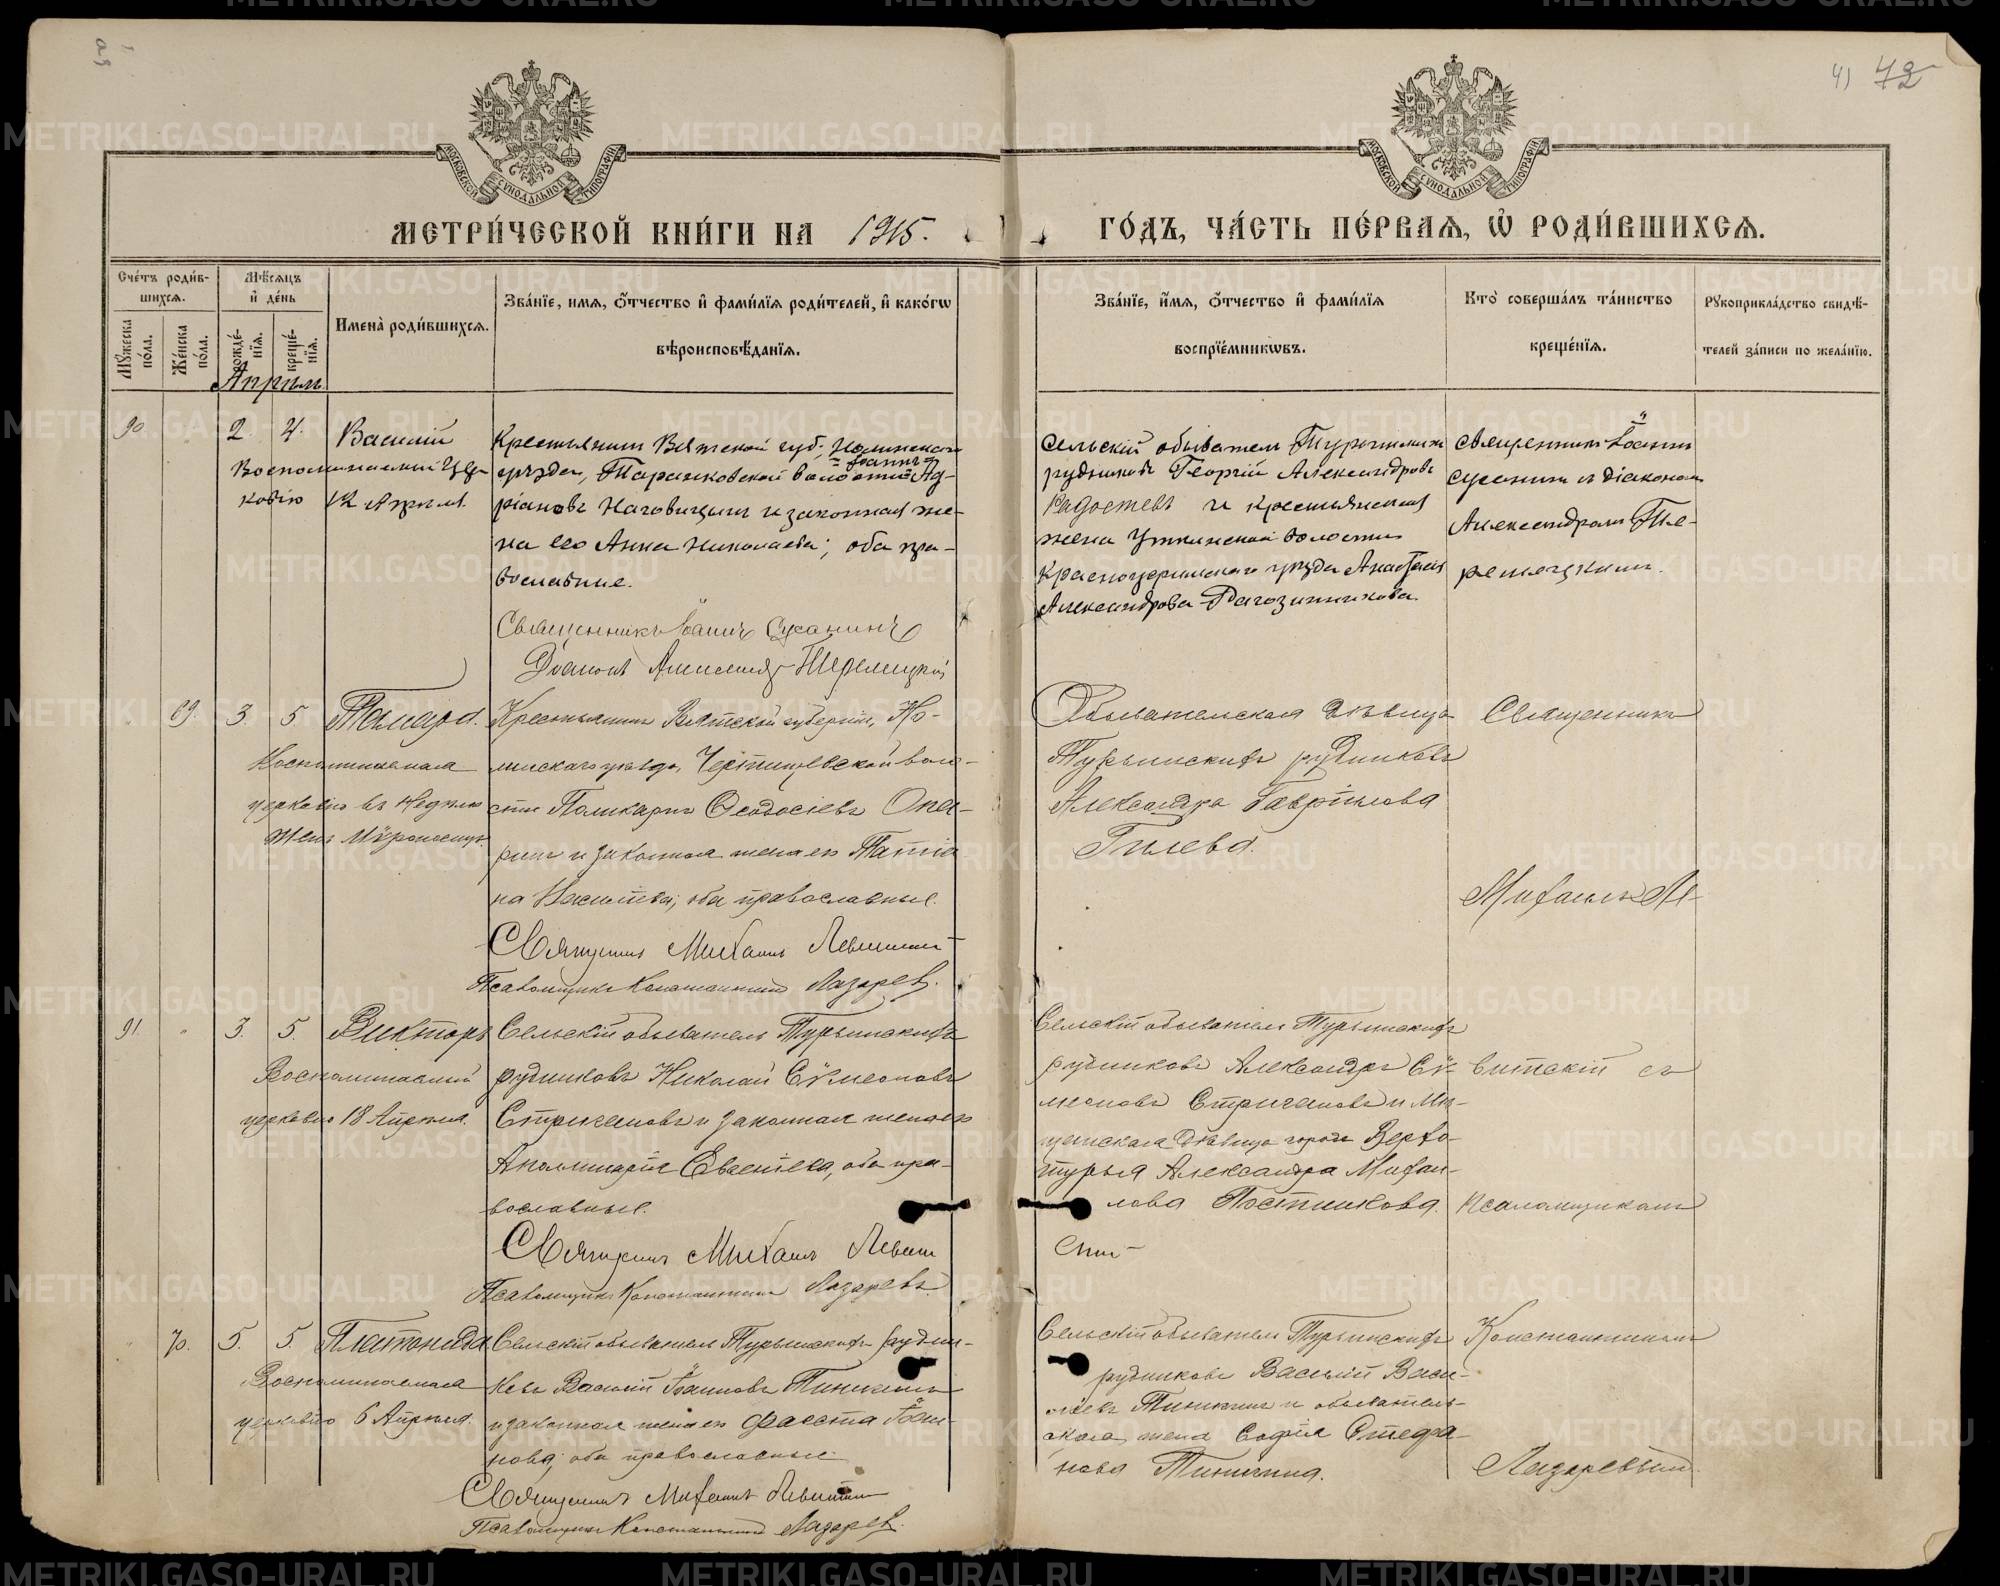 42
МОСКОВСКОЙ СѴНОДАЛЬНОЙ ТИПОГРАФІИ
МОСКОВСКОЙ СѴНОДАЛЬНОЙ ТИПОГРАФІИ
МЕТРИ́ЧЕСКОЙ КНИ́ГИ НА 1915.
ГО́ДЪ, ЧА́СТЬ ПЕ́РВАЯ, Ѽ РОДИ́ВШИХСЯ.
Сче́тъ роди́в-
шихся.
Мѣ́сяцъ
и҆ де́нь
Мꙋ́жеска по́ла.
Же́нска по́ла.
рожде́-
нїя.
креще́-
нїя.
Имена̀ роди́вшихся.
Зва́нїе, имя, ѻ҆́тчество и҆ фами́лїя роди́телей, и҆ како́гѡ
вѣроисповѣ́данїя.
Зва́нїе, и҆́мя, ѻ҆́тчество и҆ фами́лїя
воспрїе́мникѡвъ.
Кто̀ соверша́лъ та́инство
креще́нїя.
Рꙋкоприкла́дство свидѣ́-
телей за́писи по жела́нїю.
Апрѣль
90 2 4. Василій
Воспоминаемый Цер-
ковію 12 Апрѣля.
Крестьянинъ Вятской губ., Нолинскаго
уѣзда, Таранковской волости Іоаннъ Ад-
ріановъ Наговицынъ и законная же-
на его Анна Николаева; оба пра-
вославные.
Священникъ Іоаннъ Сусанинъ
Діаконъ Александръ Теремецкій
Сельскій обыватель Турьинскихъ
рудниковъ Георгій Александровъ
Радостевъ и крестьянская
жена Уткинской волости
Красноуфимскаго уѣзда Анастасія
Александрова Рагозинникова.
Священникъ Іоаннъ
Сусанинъ съ діакономъ
Александромъ Те-
ремецкимъ.
69. 3. 5 Тамара.
Воспоминаемая
церковію въ Недѣлю
Женъ Мѵроносицъ.
Крестьянинъ Вятской губерніи, Но-
линскаго уѣзда, воло-
сти Поликарпъ Ѳеодосіевъ Опа-
ринъ и законная жена его Татіа
на Васильева; оба православные.
Священникъ Михаилъ Левитскій
Псаломщикъ Константинъ Лазаревъ.
Обывательская дѣвица
Турьинскихъ рудниковъ
Александра Гавріилова
Гилева.
Священникъ
Михаилъ Ле-
91. 3. 5. Викторъ
Воспоминаемый
церковію 18 Апрѣля.
Сельскій обыватель Турьинскихъ
рудниковъ Николай Сѵмеоновъ
Стригановъ и законная жена его
Аполлинарія Евгеніева, оба пра-
вославные.
Священникъ Михаилъ Левит
Псаломщикъ Константинъ Лазаревъ.
Сельскій обыватель Турьинскихъ
рудниковъ Александръ Сѵ-
меоновъ Стригановъ и Мѣ-
щанская дѣвица города Верхо-
турья Александра Михаи-
лова Постникова.
витскій съ
псаломщикомъ
70. 5. 5. Платонида
Воспоминаемая
церковію 6 Апрѣля.
Сельскій обыватель Турьинскихъ рудни-
ковъ Василій Іоанновъ Тиникинъ
и законная жена его Фаеста Іоан-
нова; оба православные.
Священникъ Михаилъ Левитскій
Псаломщикъ Константинъ Лазаревъ.
Сельскій обыватель Турьинскихъ
рудниковъ Василій Васи-
льевъ Тиникинъ и обыватель-
ская жена Софія Стефа-
нова Тиникина.
Константиномъ
Лазаревымъ.
METRIKI.GASO-URAL.RU